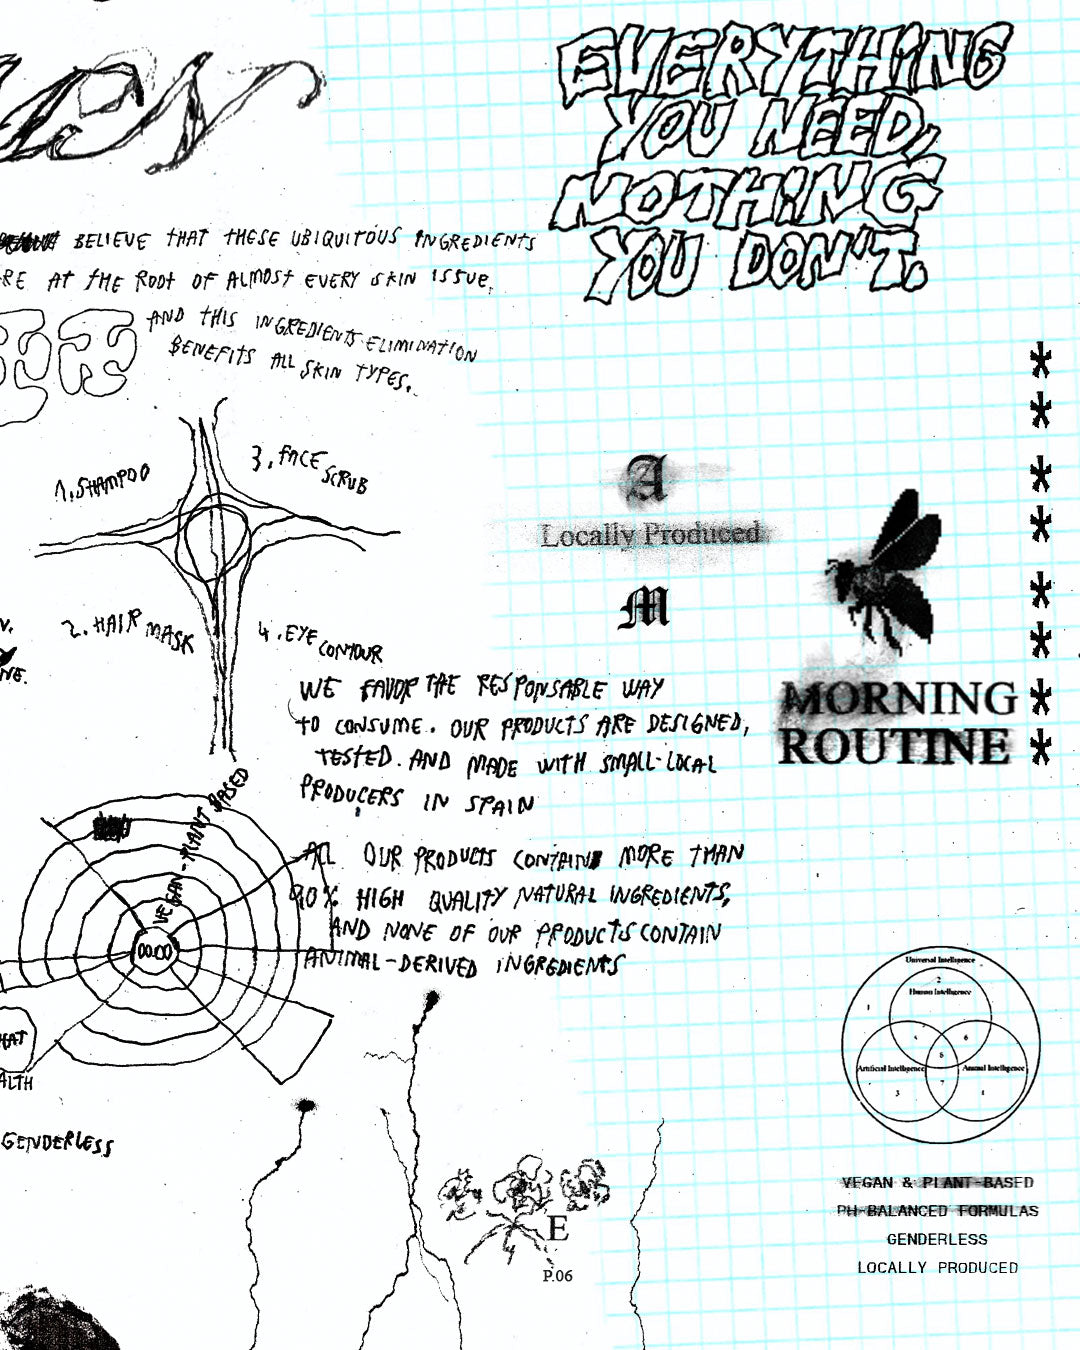 EVERYTHiNG
YOU NEED,
NOTHiNG
YOU DON'T.
BELIEVE THAT THESE UBIQUITOUS INGREDIENTS
RE AT THE ROOT OF ALMOST EVERY SKIN ISSUE,
AND THIS INGREDIENTS ELIMINATION
BENEFITS ALL SKIN TYPES.
1. SHAMPOO
3. FACE SCRUB
2. HAIR MASK
4. EYE CONTOUR
A
Locally Produced
M
MORNING
ROUTINE
*
*
*
*
*
*
*
*
V.
NE.
WE FAVOR THE RESPONSABLE WAY
TO CONSUME. OUR PRODUCTS ARE DESIGNED,
TESTED. AND MADE WITH SMALL-LOCAL
PRODUCERS IN SPAIN
VEGAN-PLANT BASED
00:00
ALL OUR PRODUCTS CONTAIN MORE THAN
90% HIGH QUALITY NATURAL INGREDIENTS,
AND NONE OF OUR PRODUCTS CONTAIN
ANIMAL-DERIVED INGREDIENTS
HAT
ALTH
GENDERLESS
Universal Intelligence
2
Human Intelligence
1
6
8
Artificial Intelligence
Animal Intelligence
7
3
E
P.06
VEGAN & PLANT-BASED
PH-BALANCED FORMULAS
GENDERLESS
LOCALLY PRODUCED